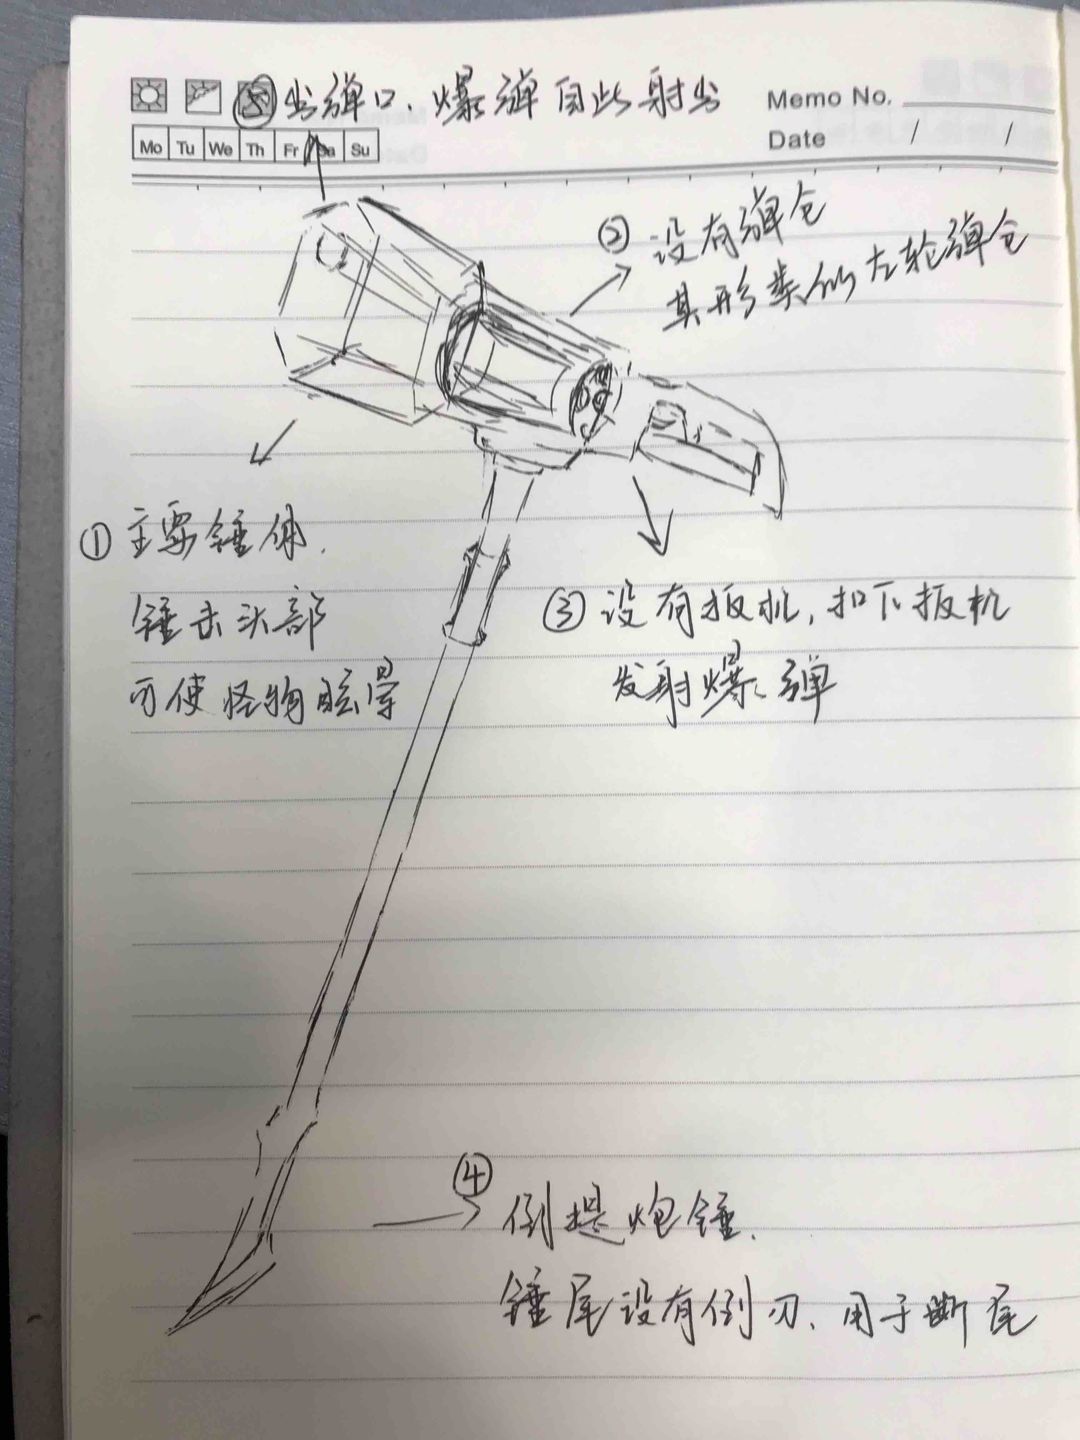 ⑤出弹口、爆弹自此射出
Memo No.
Mo Tu We Th Fr Sa Su
Date / /
②设有弹仓
其形类似左轮弹仓
①主要锤体.
锤击头部
可使怪物眩晕
③设有扳机,扣下扳机
发射爆弹
④
倒提炮锤.
锤尾设有倒刃、用于断尾